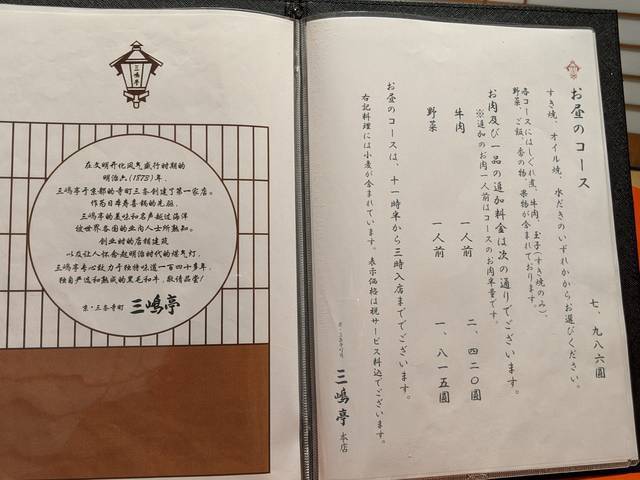 三嶋亭
在文明开化风气盛行时期的
明治六(1873)年,
三嶋亭于京都的寺町三条创建了第一家店。
作为日本寿喜锅的先驱,
三嶋亭的美味和名声越过海洋
被世界各国的业内人士所熟知。
创业时的店铺建筑
以及让人怀念起明治时代的煤气灯,
三嶋亭专心致力于独特味道一百四十多年,
独自严选和熟成的黑毛和牛,敬请品尝!
京・三条寺町 三嶋亭
お昼のコース 七、九八六圓
すき焼、オイル焼、水だきのいずれかからお選びください。
各コースにはしぐれ煮、牛肉、玉子(すき焼のみ)、
野菜、ご飯、香の物、果物が含まれております。
お肉及び一品の追加料金は次の通りでございます。
※追加のお肉一人前はコースのお肉半量です。
牛肉 一人前 二、四二〇圓
野菜 一人前 一、八一五圓
お昼のコースは、十一時半から三時入店まででございます。
右記料理には小麦が含まれています。表示価格は税サービス料込でございます。
京・三条寺町 三嶋亭 本店